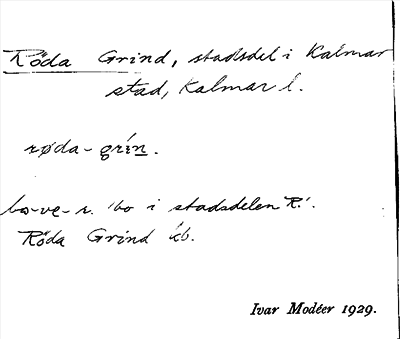 Röda Grind, stadsdel i Kalmar
stad, Kalmar l.
røda-grín.
bo-ve-r. 'bo i stadsdelen R.'.
Röda Grind ib.
Ivar Modéer 1929.